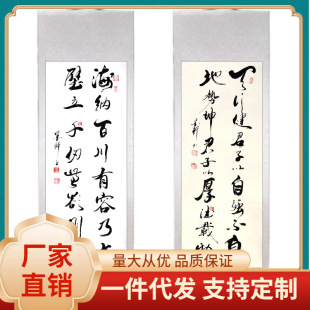 海纳百川有容乃大
壁立千仞无欲则
天行健君子以自强不息
地势坤君子以厚德载物
厂家
直销
量大从优 品质保障
一件代发 支持定制